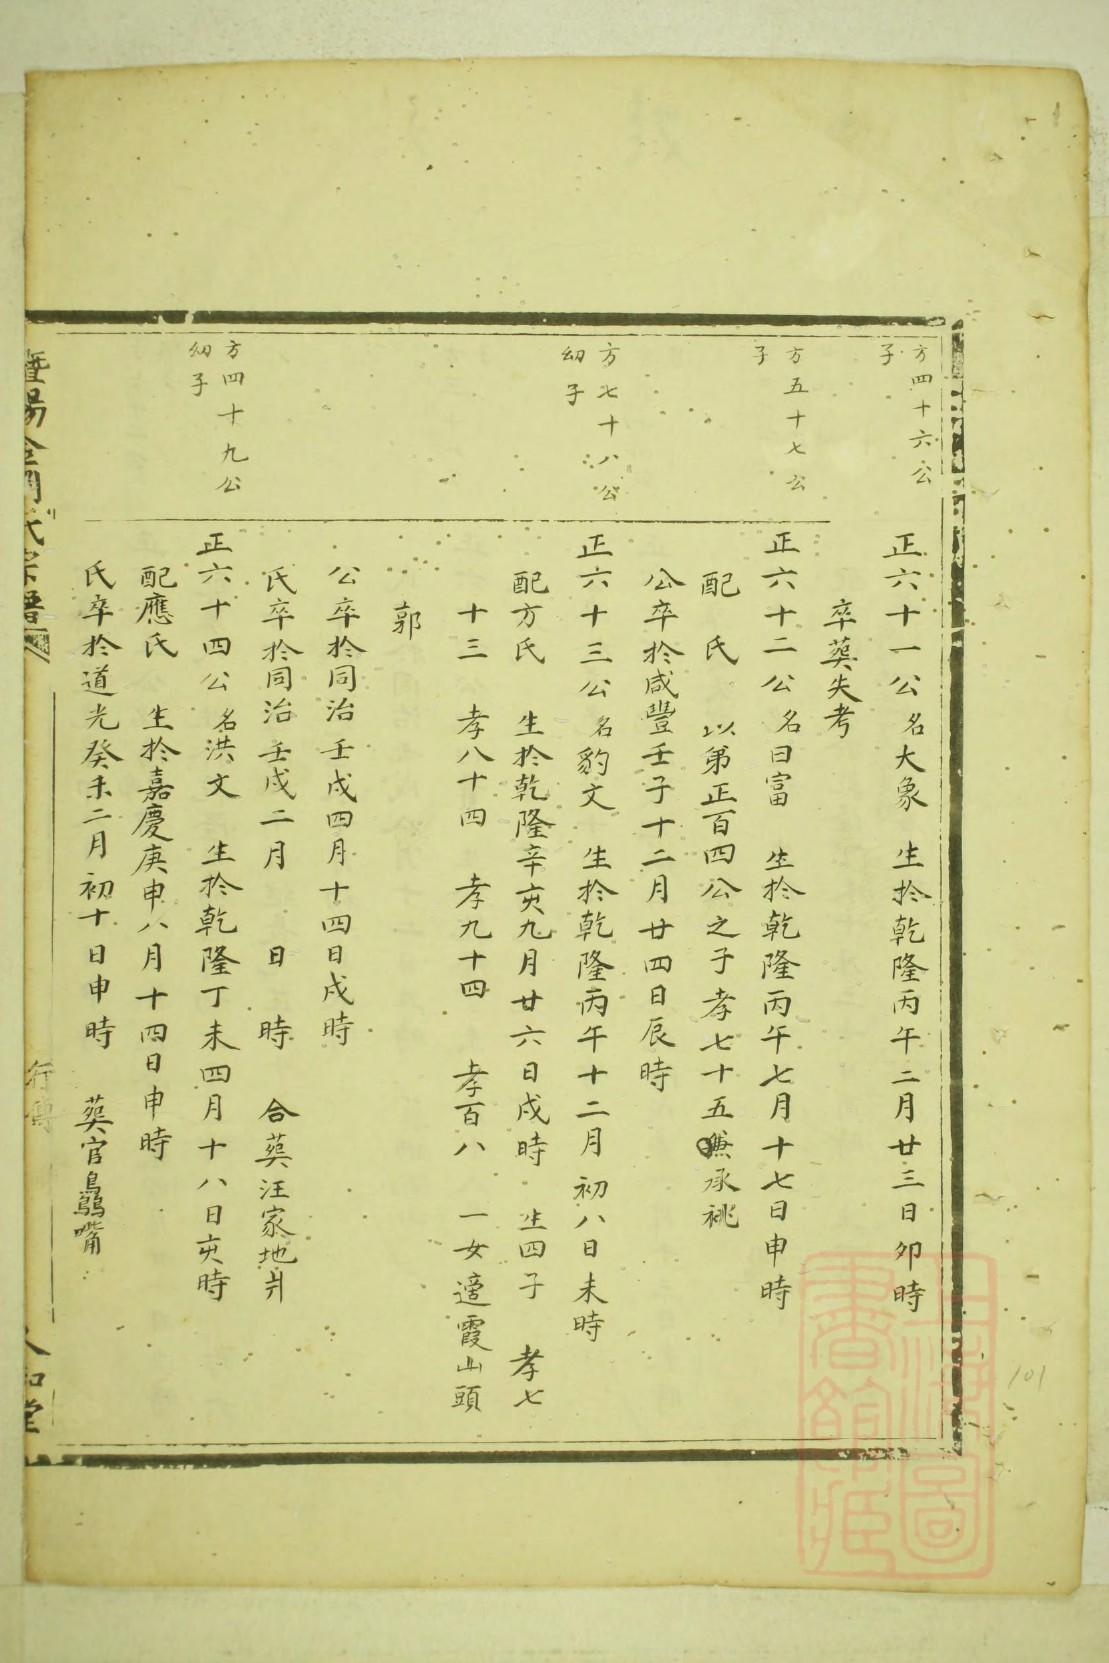 方四十六公
子
正六十一公 名大象 生於乾隆丙午二月廿三日卯時
卒葬失考
方五十七公
子
正六十二公 名曰富 生於乾隆丙午七月十七日申時
配 氏 以第正百四公之子孝七十五兼承祧
公卒於咸豐壬子十二月廿四日辰時
方七十八公
幼子
正六十三公 名豹文 生於乾隆丙午十二月初八日未時
配方氏 生於乾隆辛亥九月廿六日戌時 生四子 孝七
十三 孝八十四 孝九十四 孝百八 一女適霞山頭
郭
公卒於同治壬戌四月十四日戌時
氏卒於同治壬戌二月 日 時 合葬汪家地爿
方四十九公
幼子
正六十四公 名洪文 生於乾隆丁未四月十八日亥時
配應氏 生於嘉慶庚申八月十四日申時
氏卒於道光癸未二月初十日申時 葬官鸛嘴
暨陽 氏宗譜
行傳
和堂
上海圖
書館藏
101